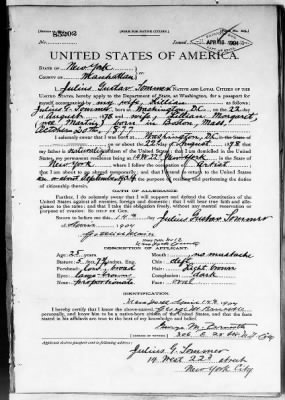 [FORM FOR NATIVE CITIZEN.]
Issued
APR 16 1904
UNITED STATES OF AMERICA.
STATE OF New York
COUNTY OF Manhattan
I, Julius Gustav Sommer, a NATIVE AND LOYAL CITIZEN OF THE
UNITED STATES, hereby apply to the Department of State, at Washington, for a passport for
myself accompanied by my wife, Lillian
Julius G. Sommer born at Washington D.C. on the 22nd day
of August 1876 and wife Lillian Margaret,
born in Boston, Mass.
October 30th, 1877
that I was born at Washington, D.C.
in the State of on the 22 day of August, 1876 that
my father is a citizen of the United States; that I am domiciled in the United
States, my permanent residence being at 14 W 22d New York in the State of
New York, where I follow the occupation of Artist
that I am about to go abroad temporarily; and that I intend to return to the United States
on or about September 1904 for the purpose of residing and performing the duties
of citizenship therein.
OATH OF ALLEGIANCE.
Further, I do solemnly swear that I will support and defend the Constitution of the
United States against all enemies, foreign and domestic; that I will bear true faith and
allegiance to the same; and that I take this obligation freely, without any mental reservation or
purpose of evasion: So help me God.
Sworn to before me this 14th day
1904
Julius Gustav Sommer
Notary Public
New York County
DESCRIPTION OF APPLICANT.
Age: years
Mouth: no mustache
Stature: feet inches, Eng.
Chin:
Forehead: broad
Hair: light brown
Eyes: brown
Complexion: dark
Nose: proportionate
Face: oval
IDENTIFICATION.
New York April 14th 1904
I hereby certify that I know the above-named
personally, and know him to be a native-born citizen of the United States, and that the facts
stated in his affidavit are true to the best of my knowledge and belief.
George M.
[ADDRESS OF WITNESS]
Applicant desires passport to be sent to following address:
Julius G. Sommer
14 West 22d street
New York City